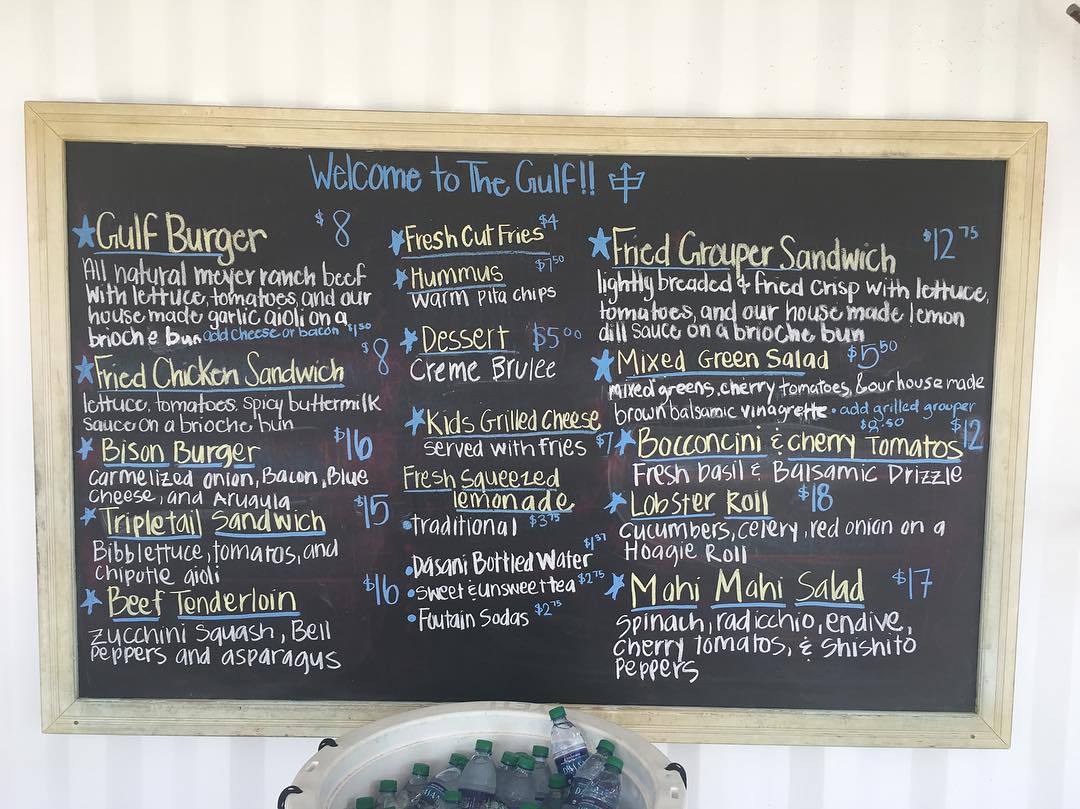 Welcome to The Gulf!!
Gulf Burger $8
All natural meyer ranch beef
with lettuce, tomatoes, and our
house made garlic aioli on a
brioche bun add cheese or bacon $1.50
Fried Chicken Sandwich $8
lettuce, tomatoes, spicy buttermilk
sauce on a brioche bun
Bison Burger $16
carmelized onion, Bacon, Blue
cheese, and Arugula
Tripletail Sandwich $15
Bibb lettuce, tomatos, and
Chipotle aioli
Beef Tenderloin $16
Zucchini Squash, Bell
Peppers and asparagus
Fresh Cut Fries $4
Hummus $7.50
warm pita chips
Dessert $5.00
Creme Brulee
Kids Grilled Cheese
served with fries $7
Fresh Squeezed
lemonade
•traditional $3.75
•Dasani Bottled Water $1.37
•sweet & unsweet tea $2.75
•Foutain Sodas $2.75
Fried Grouper Sandwich $12.75
lightly breaded & fried crisp with lettuce,
tomatoes, and our house made lemon
dill sauce on a brioche bun
Mixed Green Salad $5.50
mixed greens, cherry tomatoes, & our house made
brown balsamic vinagrette •add grilled grouper
Bocconcini & cherry Tomatos $12
Fresh basil & Balsamic Drizzle
Lobster Roll $18
Cucumbers, celery, red onion on a
Hoagie Roll
Mahi Mahi Salad $17
Spinach, radicchio, endive,
Cherry Tomatos, & Shishito
Peppers